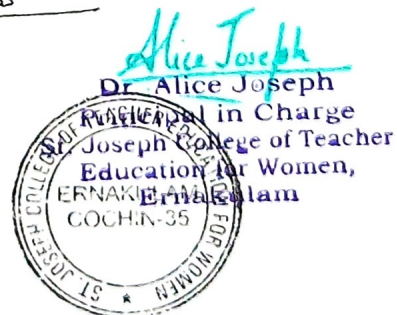 Alice Joseph
Dr. Alice Joseph
Principal in Charge
St. Joseph College of Teacher
Education for Women,
Ernakulam
ST. JOSEPH COLLEGE OF TEACHER EDUCATION FOR WOMEN
ERNAKULAM
COCHIN-35